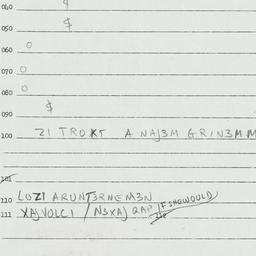 040 9
050 $
060 O
070 O
080 O
090 $
100 ZI TROKT A NAJ3M GRIN3MM
101
110 LOZI ARUNT3RNEM3N
111 XAJVOLCI / N3XAJ RAP IF SHGWOULD